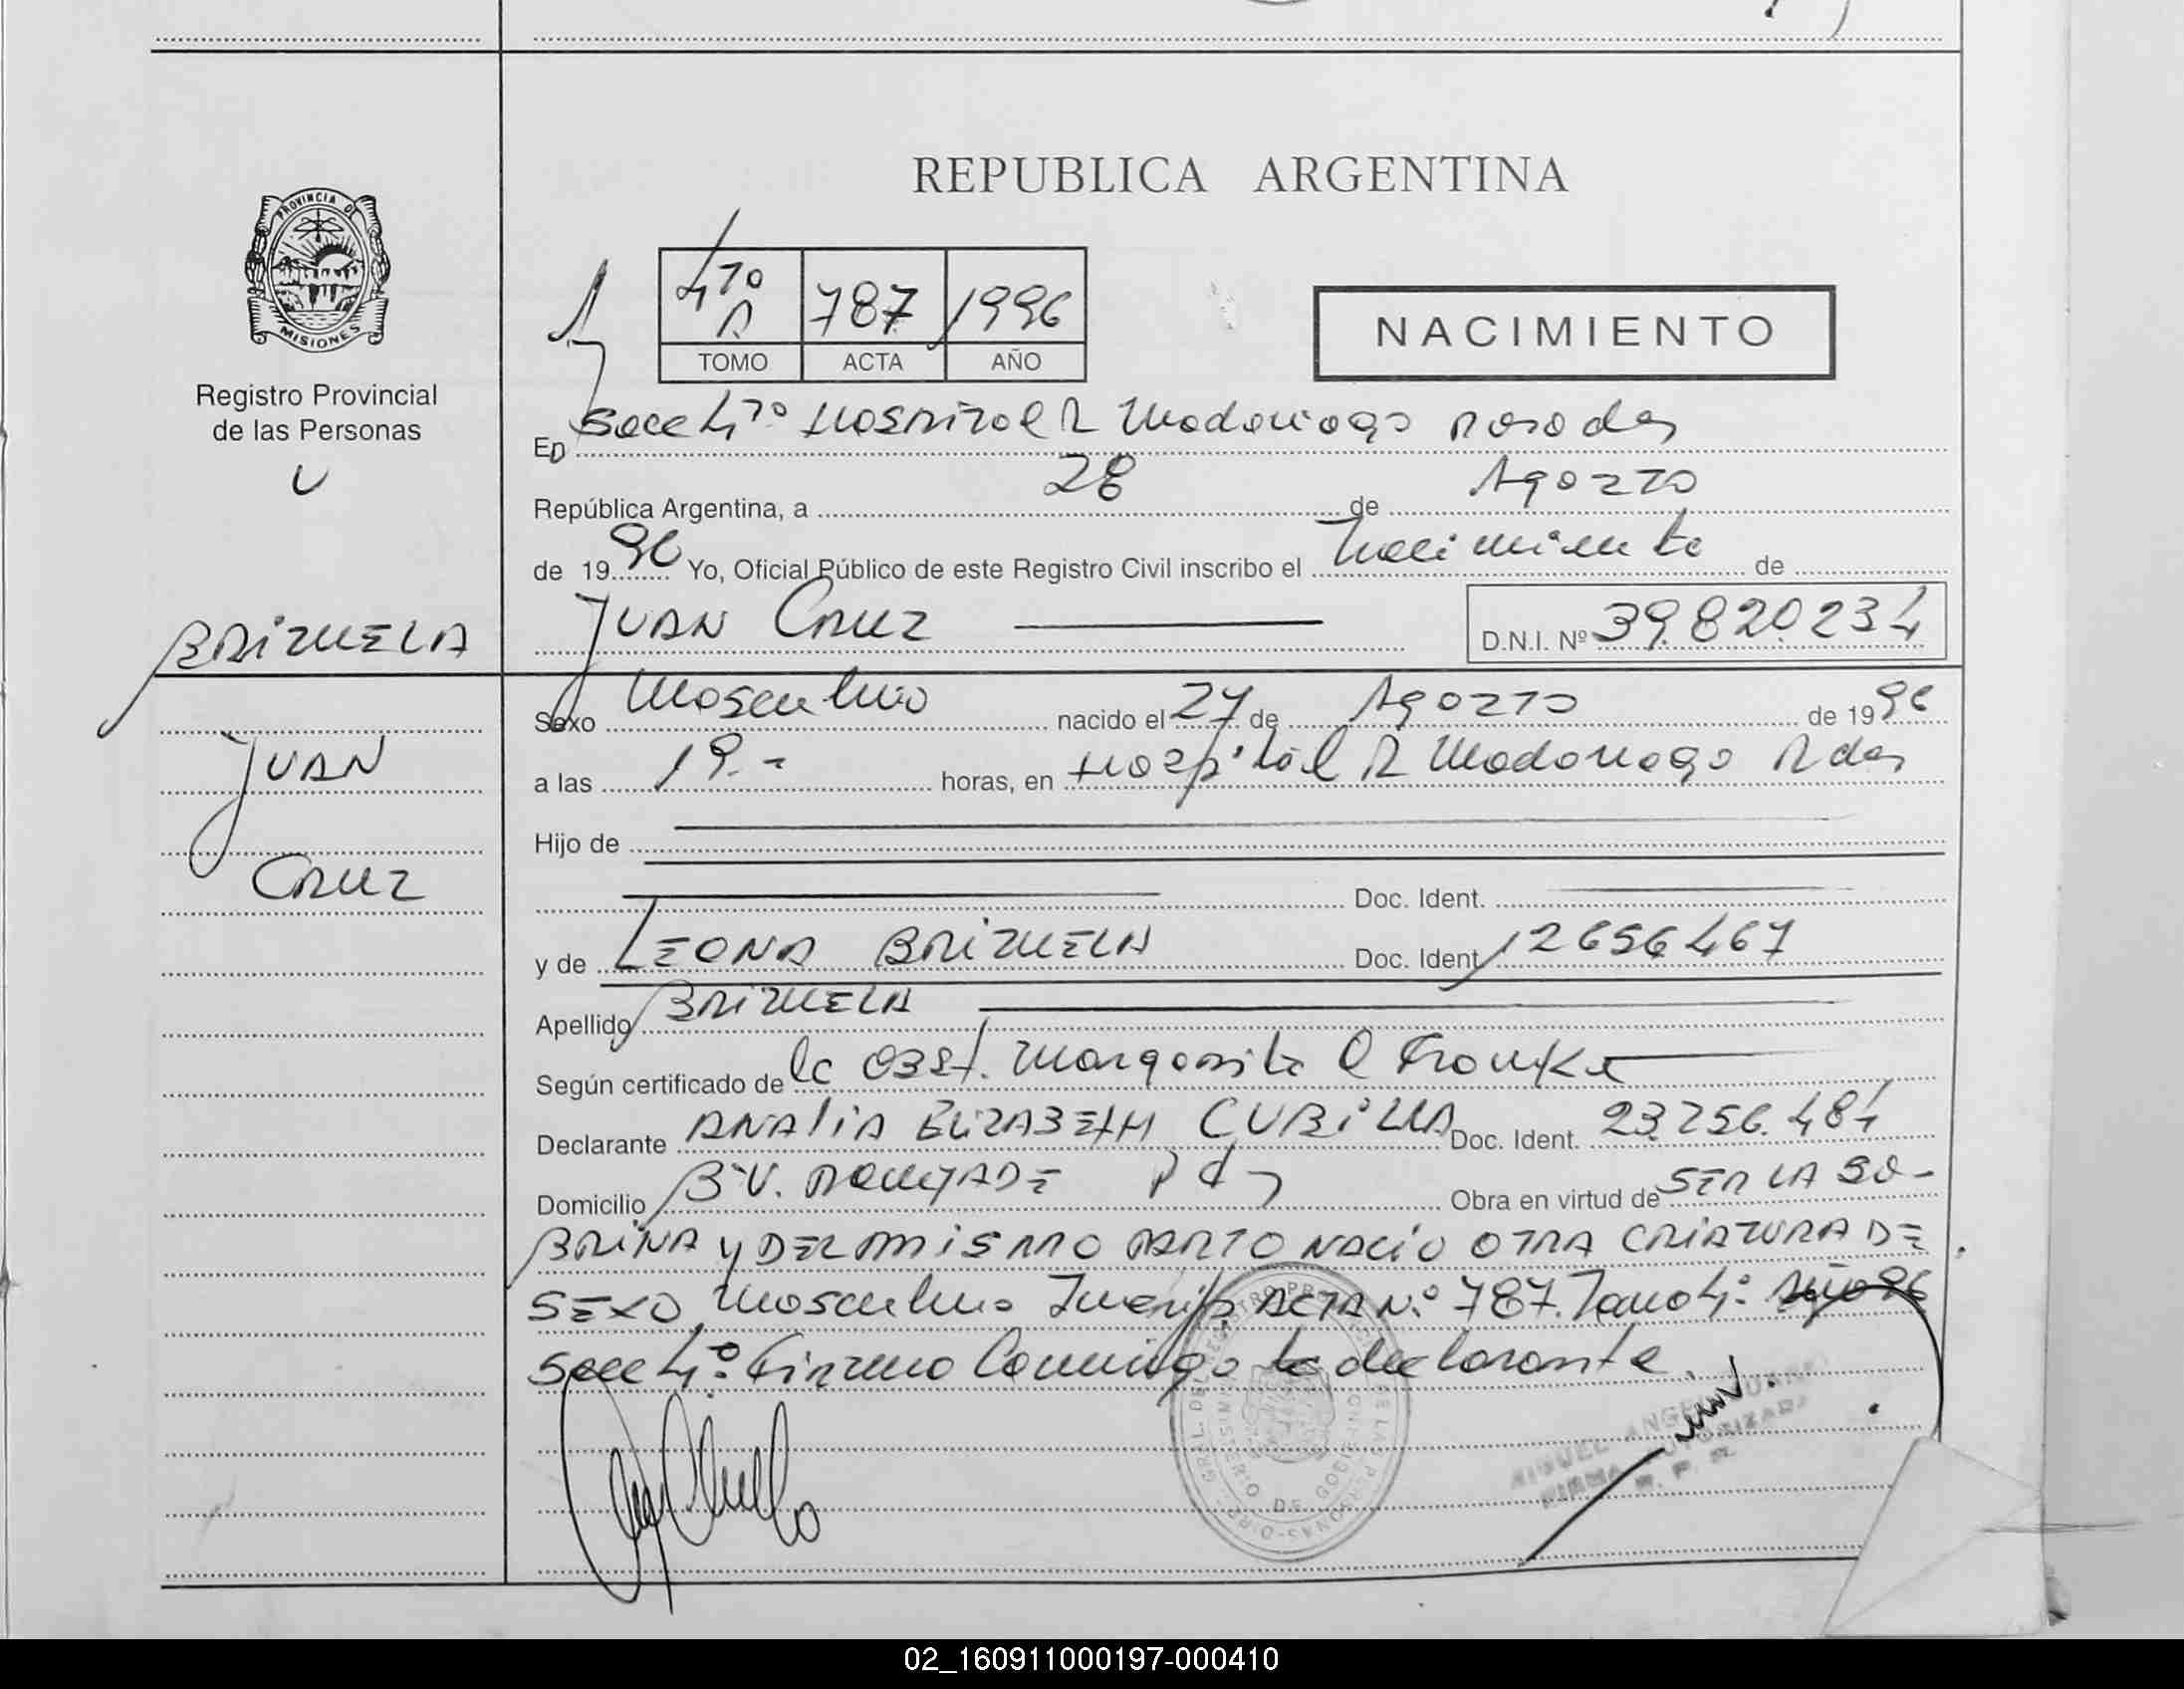 REPUBLICA ARGENTINA
PROVINCIA DE
MISIONES
Registro Provincial
de las Personas
4to A 787 1996
TOMO ACTA AÑO
NACIMIENTO
En Secc 4to Hospital R Madariaga Posadas
República Argentina, a 28 de Agosto
de 1996 Yo, Oficial Público de este Registro Civil inscribo el Nacimiento de
JUAN CRUZ D.N.I. Nº 39.820.234
BRIZUELA
JUAN
CRUZ
Sexo Masculino nacido el 27 de Agosto de 1996
a las 19.- horas, en Hospital R Madariaga Pdas
Hijo de
Doc. Ident.
y de LEONA BRIZUELA Doc. Ident. 12656467
Apellido BRIZUELA
Según certificado de la Obst. Margarita Franke
Declarante ANALIA ELIZABETH CUBILLA Doc. Ident. 23.256.484
Domicilio Bº V. Pdas Obra en virtud de SER LA SO-
BRINA y DEL MISMO PARTO NACIO OTRA CRIATURA DE
SEXO Masculino ACTA Nº 787. Tomo 4º Año 96
Secc 4º. Firmando Conmigo la declarante.
MIGUEL ANGEL
FIRMA AUTORIZADA
R. P. P.
02_160911000197-000410